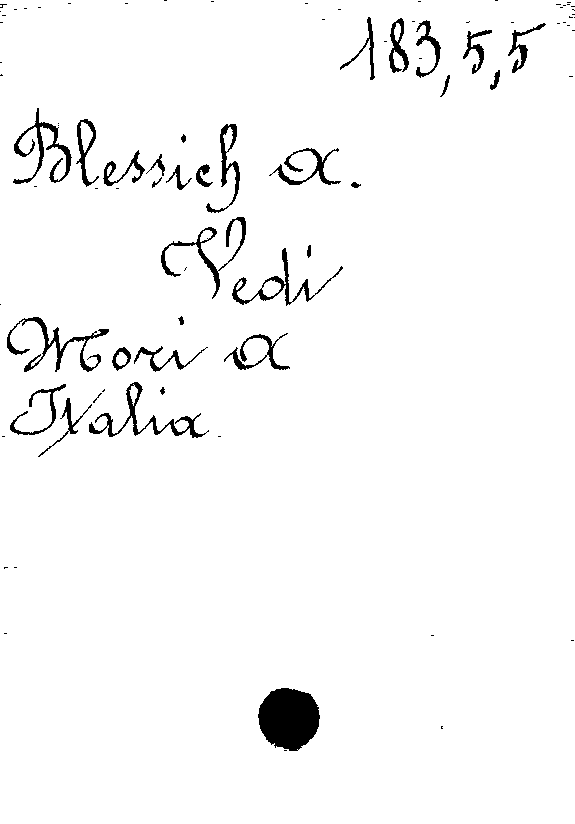 183,5,5
Blessich A.
Vedi
Mori A
Italia